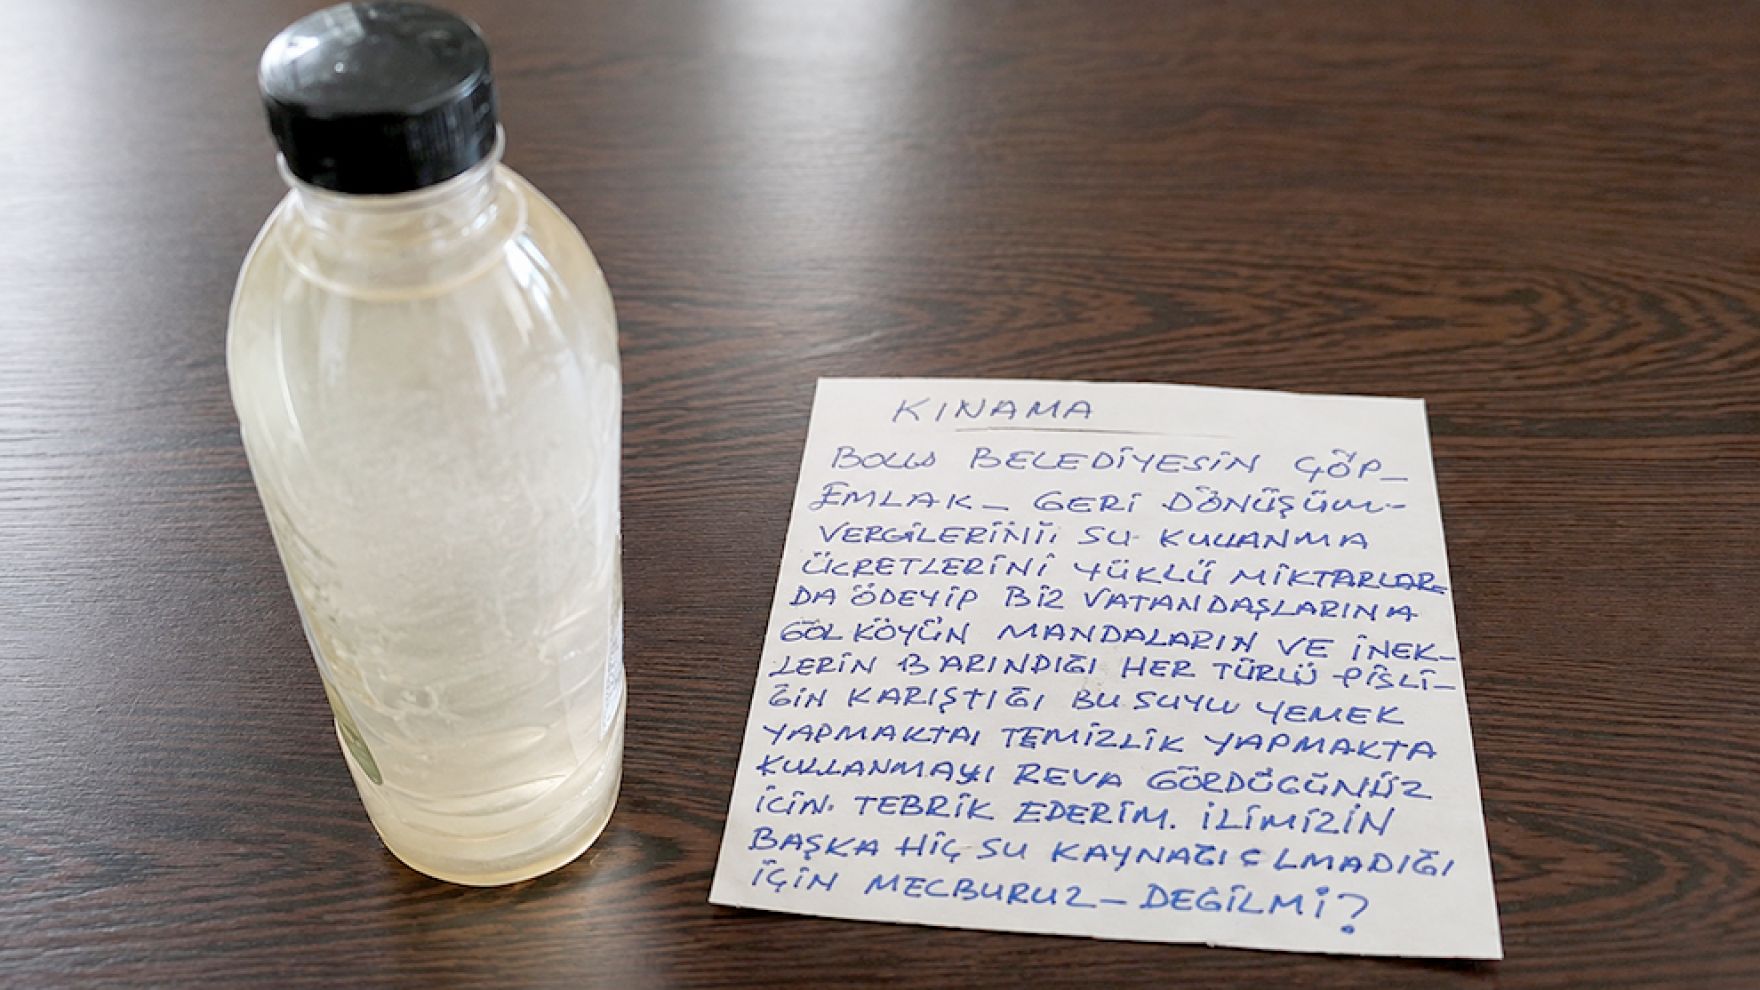 KINAMA
BOLU BELEDİYESİN ÇÖP_
EMLAK_ GERİ DÖNÜŞÜM-
VERGİLERİNİ, SU KULLANMA
ÜCRETLERİNİ YÜKLÜ MİKTARLAR
DA ÖDEYİP BİZ VATANDAŞLARINA
GÖLKÖYÜN MANDALARIN VE İNEK_
LERİN BARINDIĞI HER TÜRLÜ PİSLİ_
ĞİN KARIŞTIĞI BU SUYU YEMEK
YAPMAKTA, TEMİZLİK YAPMAKTA
KULLANMAYI REVA GÖRDÜĞÜNÜZ
İCİN. TEBRİK EDERİM. İLİMİZİN
BAŞKA HİÇ SU KAYNAĞI OLMADIĞI
İÇİN MECBURUZ_ DEĞİLMİ?